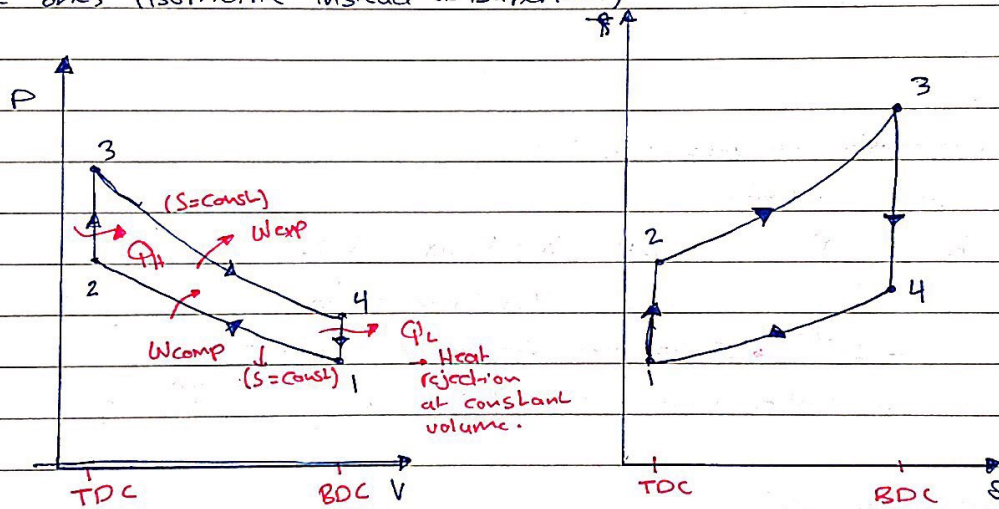 P
3
(S=Const)
Wexp
QH
2
4
QL
Wcomp
(S=Const)
1
→ Heat
rejection
at constant
volume.
TDC
BDC
V
3
2
4
1
TDC
BDC
S